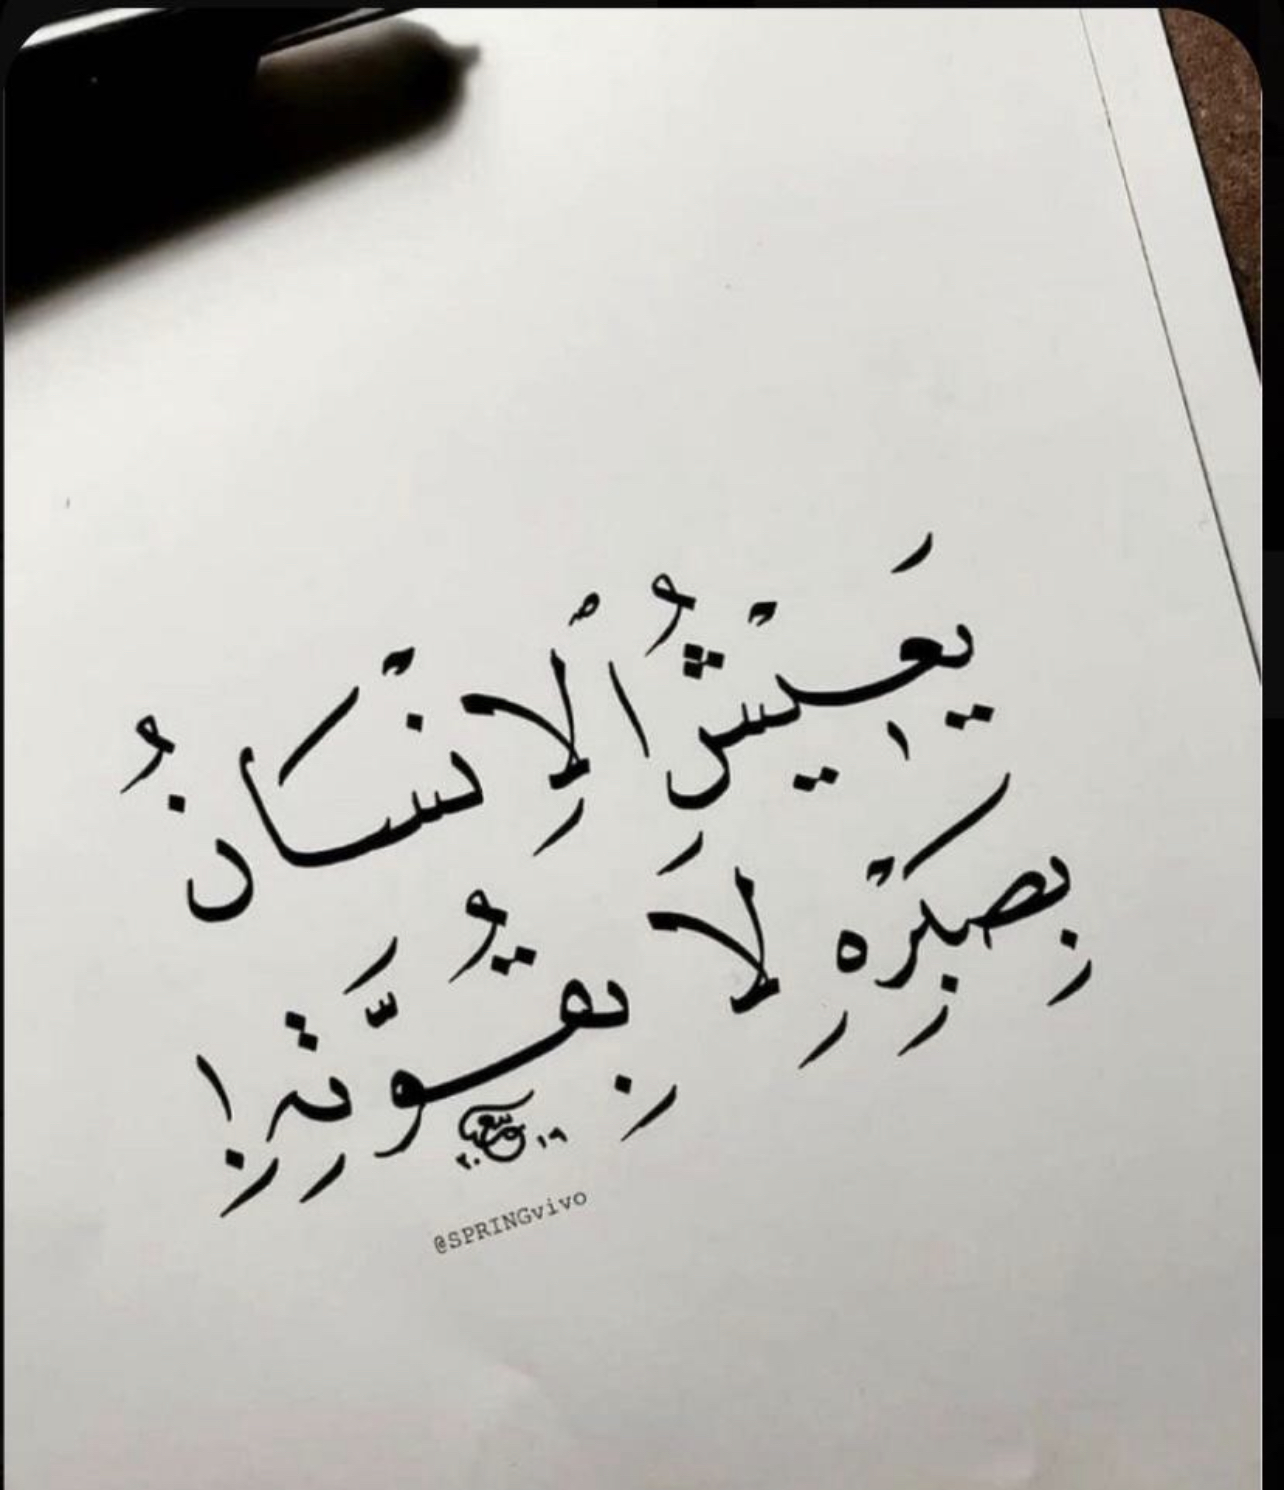 يَعِيْشُ ٱلإِنْسَانُ
بِصَبْرِهِ لَا بِقُوَّتِهِ!
٢٠١٩
@SPRINGvivo